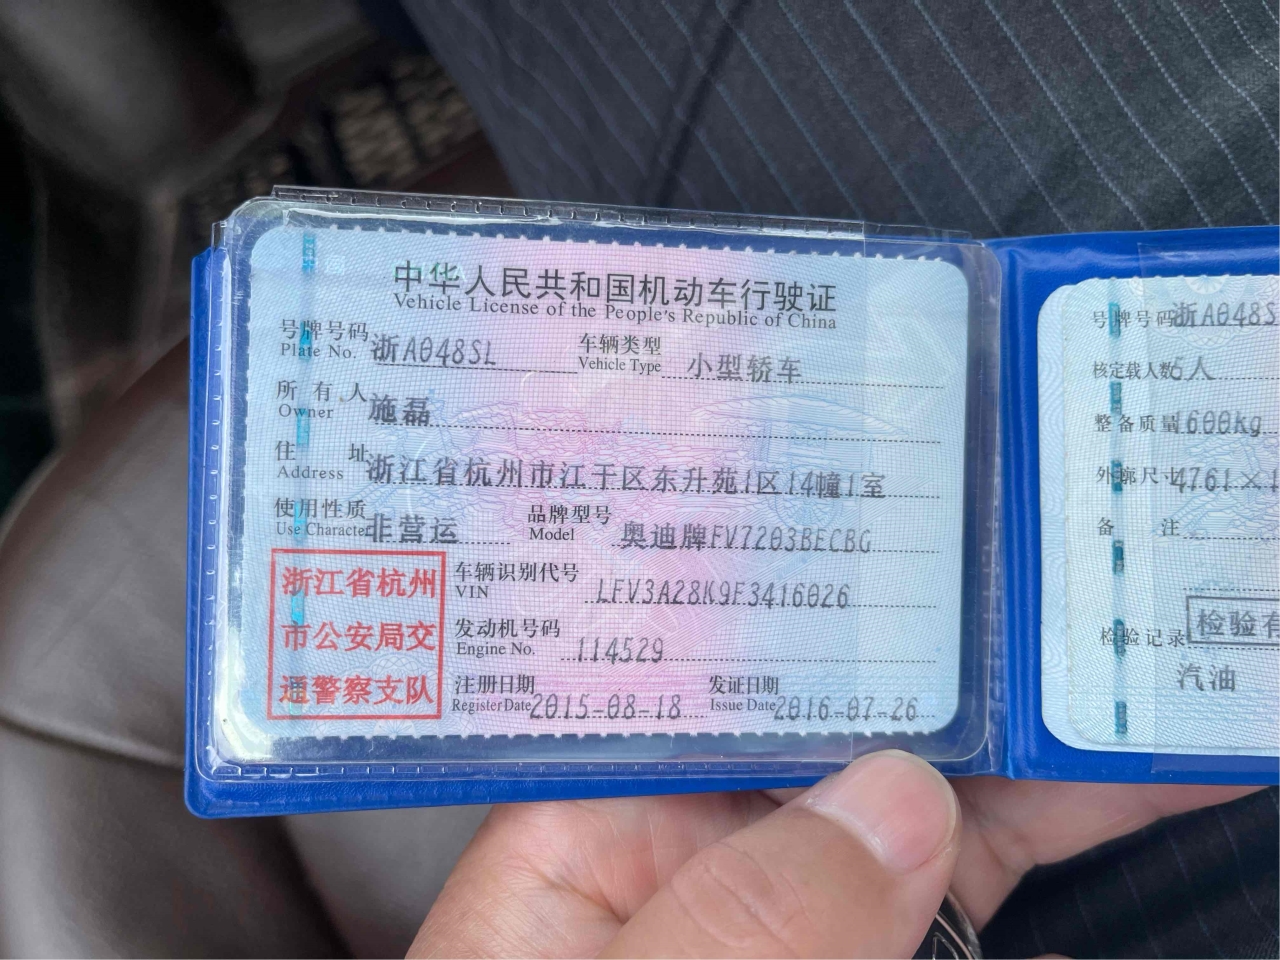 中华人民共和国机动车行驶证
Vehicle License of the People's Republic of China
号牌号码 浙A048SL 车辆类型 小型轿车
Plate No. Vehicle Type
所有人 施磊
Owner
住址 浙江省杭州市江干区东升苑1区14幢1室
Address
使用性质 非营运 品牌型号 奥迪牌FV7203BECBG
Use Character Model
浙江省杭州
市公安局交
通警察支队
车辆识别代号 LFV3A28K9F3416026
VIN
发动机号码 114529
Engine No.
注册日期 2015-08-18 发证日期 2016-07-26
Register Date Issue Date
号牌号码 浙A048S
核定载人数 5人
整备质量 1600kg
外廓尺寸 4761×1
备注
检验记录 检验有
汽油